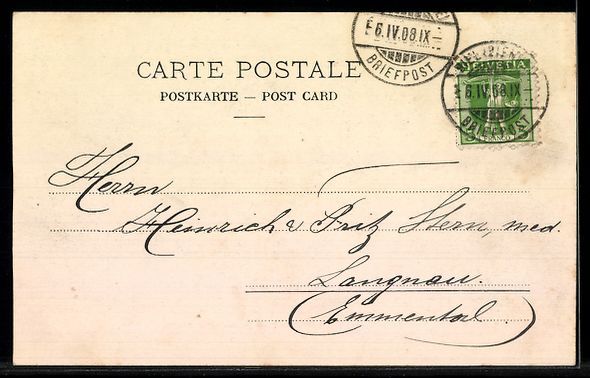 CARTE POSTALE
POSTKARTE — POST CARD
6.IV.08.IX
BRIEFPOST
HELVETIA
6.IV.08.IX
BRIEFPOST
FRANCO
Herrn
Heinrich & Fritz Stern, med.
Langnau.
(Emmental)